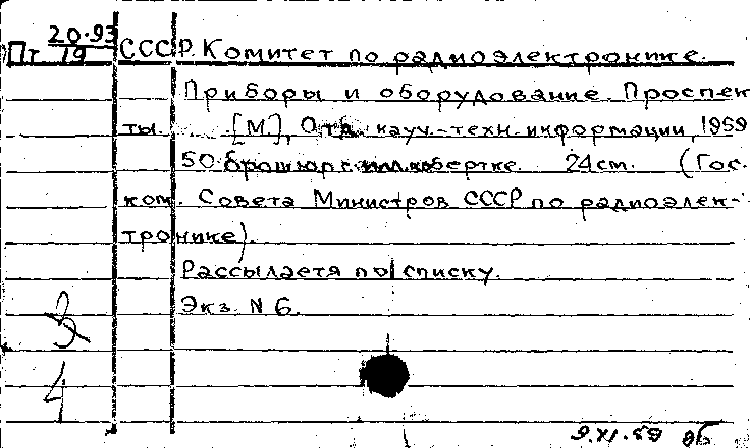 20-93
Пт 19 СССР. Комитет по радиоэлектронике.
Приборы и оборудование. Проспек-
ты. [М.], Отд. науч.-техн. информации, 1959
50 брошюр с илл. в обертке. 24 см. (Гос.
ком. Совета Министров СССР по радиоэлек-
тронике).
Рассылаетя по списку.
Экз. N 6.
3
4
9.XI.59